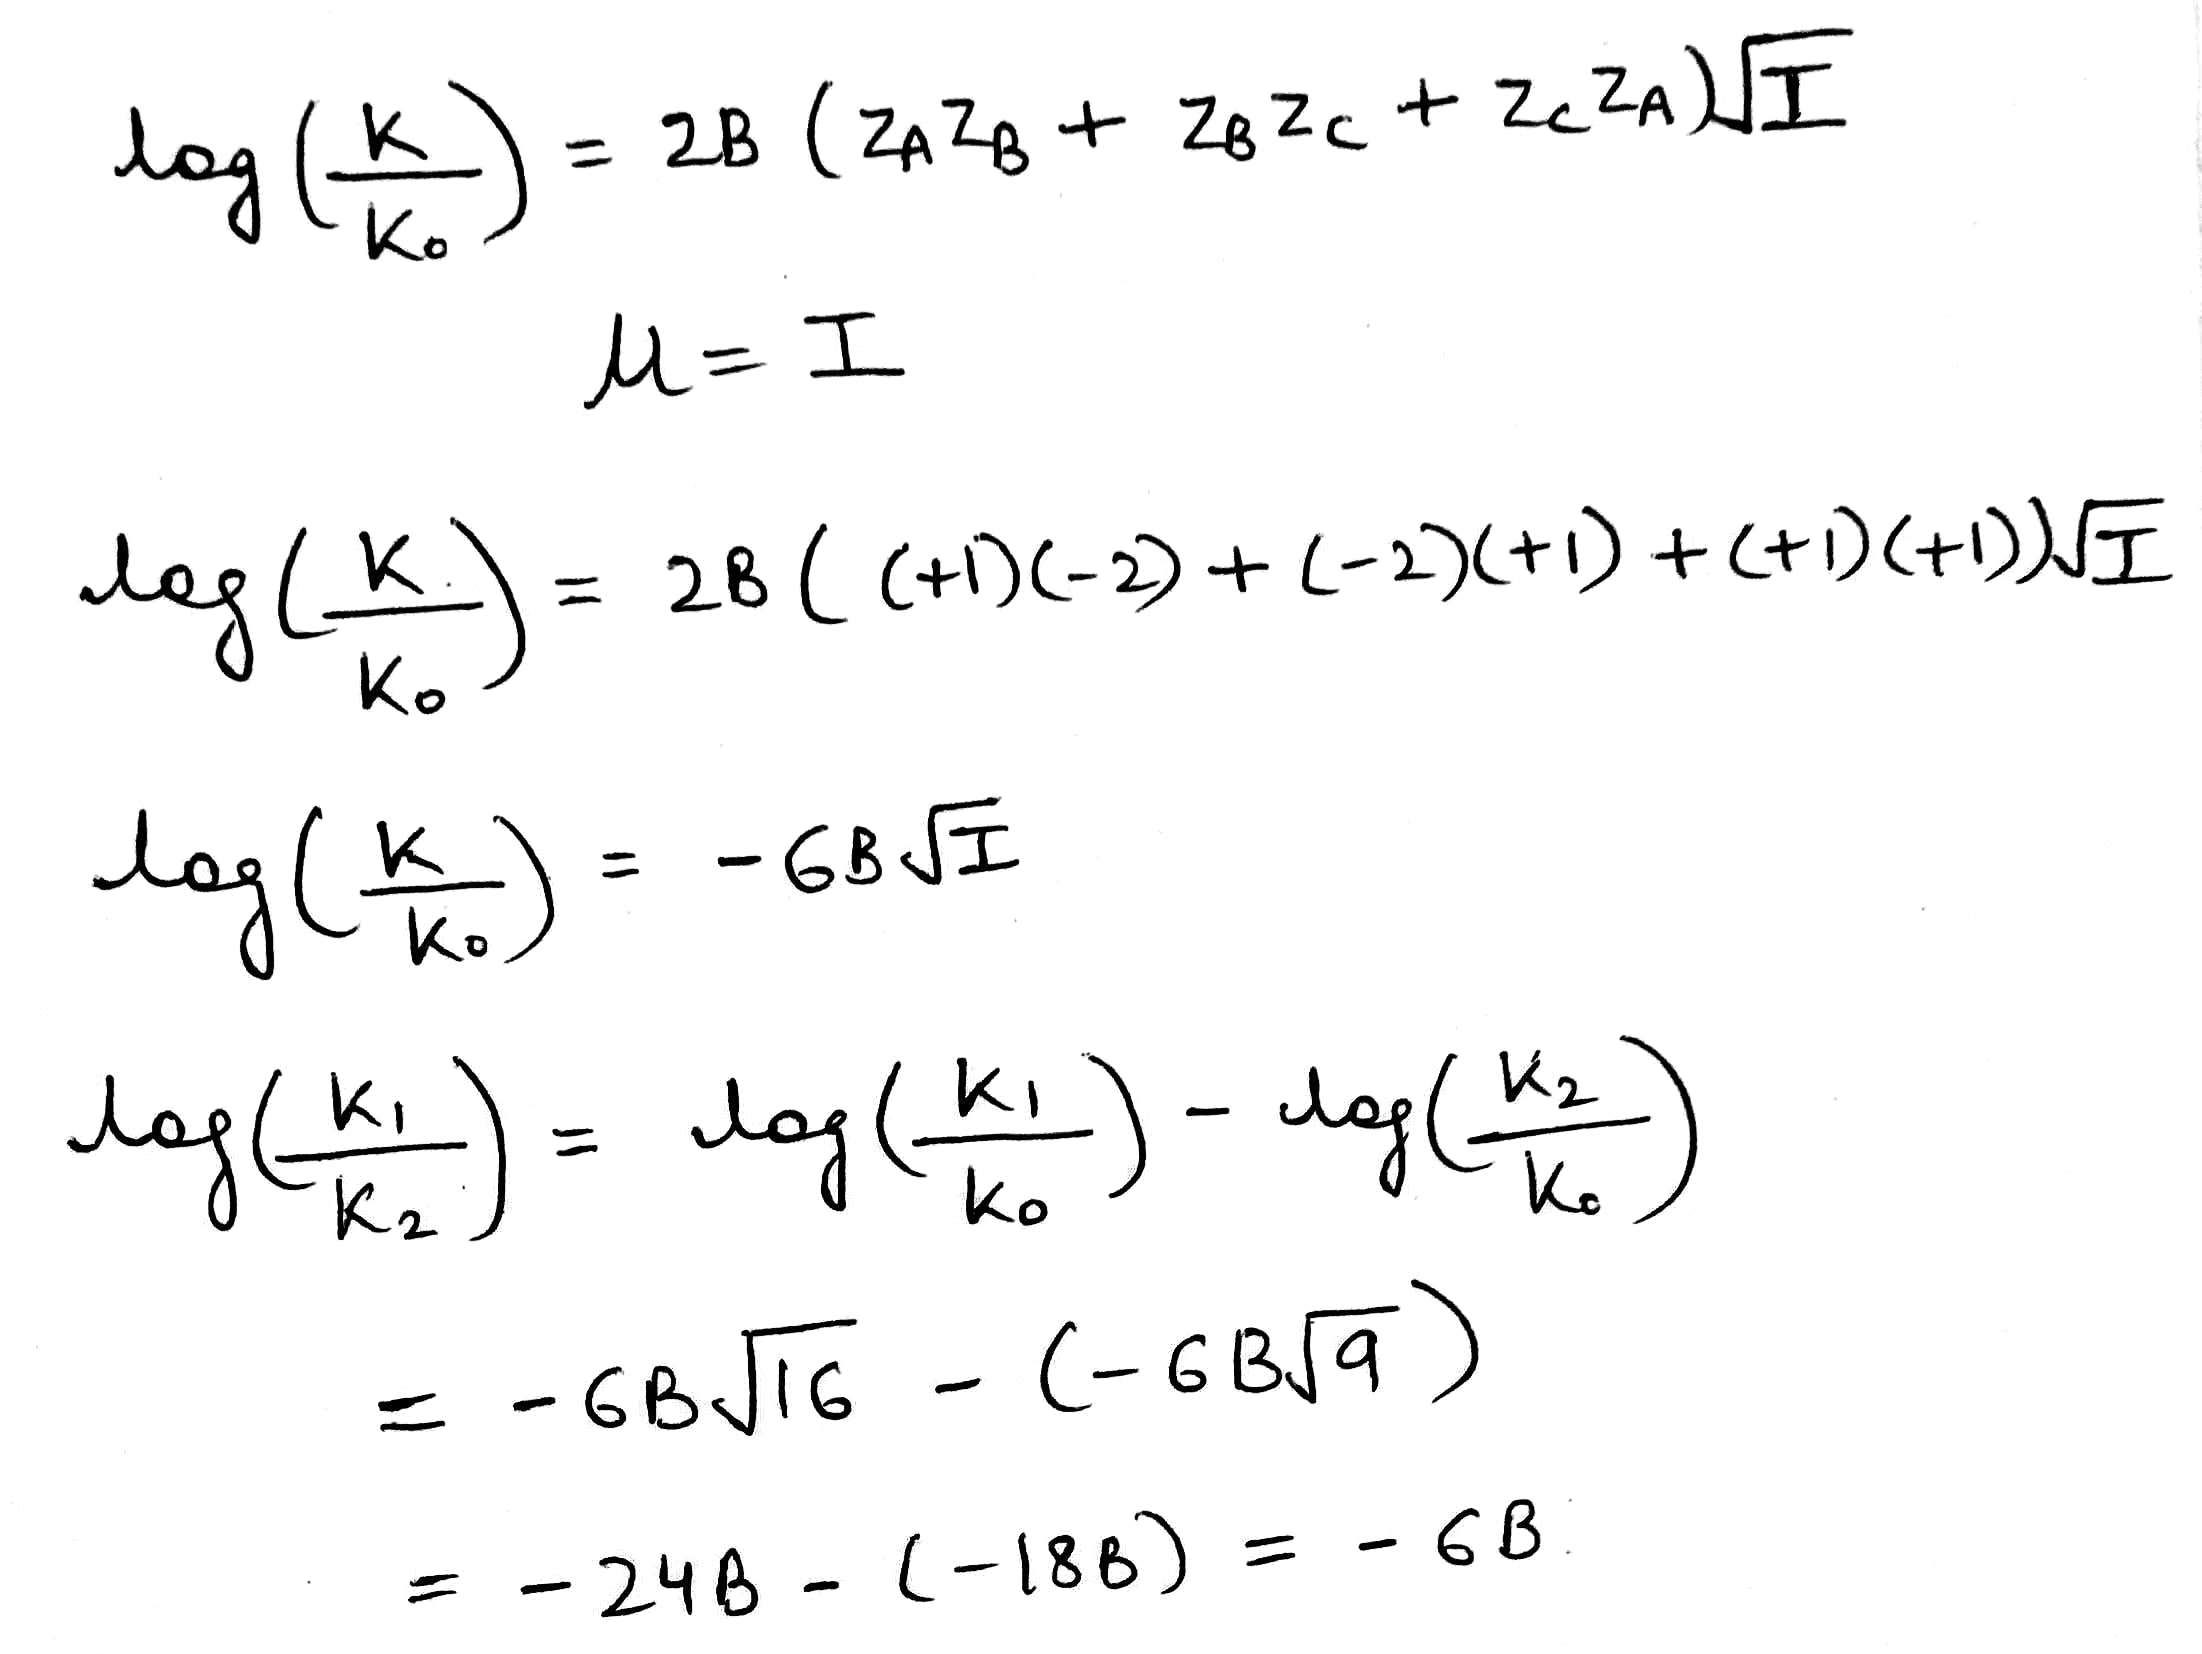 log(K/K₀) = 2B (Z_A Z_B + Z_B Z_C + Z_C Z_A)√I
μ = I
log(K/K₀) = 2B ( (+1)(-2) + (-2)(+1) + (+1)(+1))√I
log(K/K₀) = -6B√I
log(K₁/K₂) = log(K₁/K₀) - log(K₂/K₀)
= -6B√16 - (-6B√9)
= -24B - (-18B) = -6B